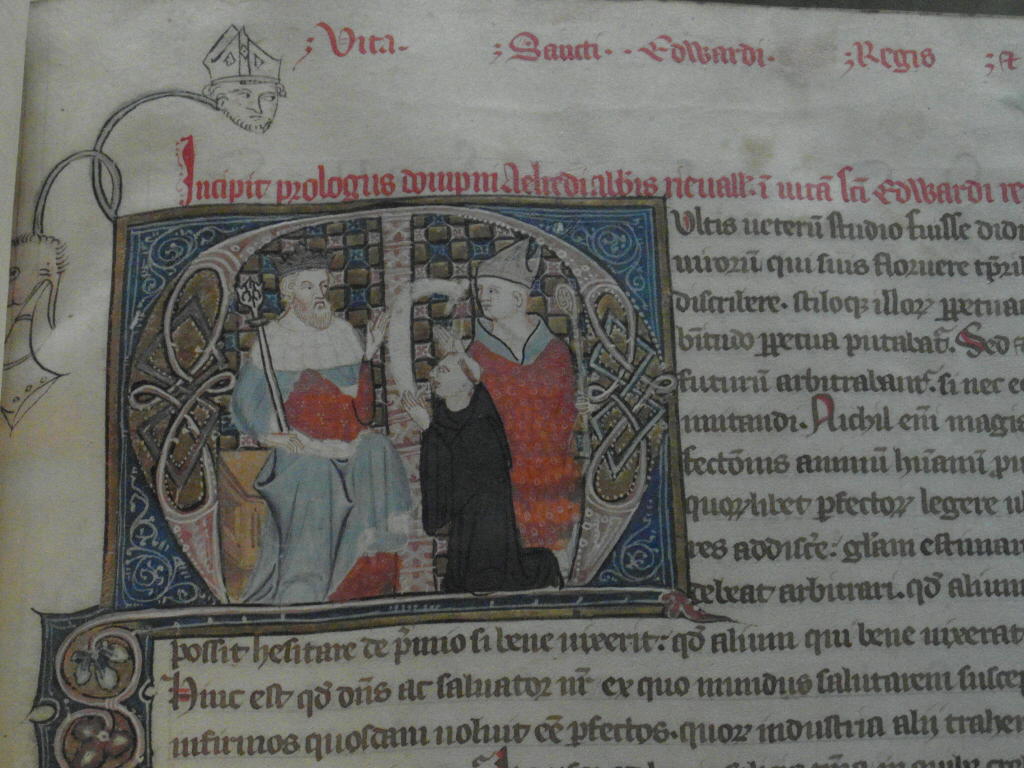 ;Vita. ;Sancti. . Edwardi. ;Regis ;&
Incipit prologus dompni Aelredi abbis rieuall. ī uitā sc̄i Edwardi re
Ultis ueterū studio fuisse didi
uirorū qui suis floruere tp̄rib
discribere. stiloqꝫ illoꝝ ꝑpetuar
bitudo ꝑpetua putabat᷑. Sed
futurū arbitrabant᷑. si nec e
imitandi. Nichil eni magis
fectōnis animū hūanū pu
quoꝝlibet ꝑfectoꝝ legere u
res addisce. glam estimar
debeat arbitrari. qđ alium
possit hesitare de p̄mio si bene uixerit: qđ alium qui bene uixerat
Hinc est qđ dn̄s ac saluator nr̄ ex quo mundus salutarem suscep
infirmos quosdam uoluit ēē ꝑfectos. quoꝝ industria alij trahe